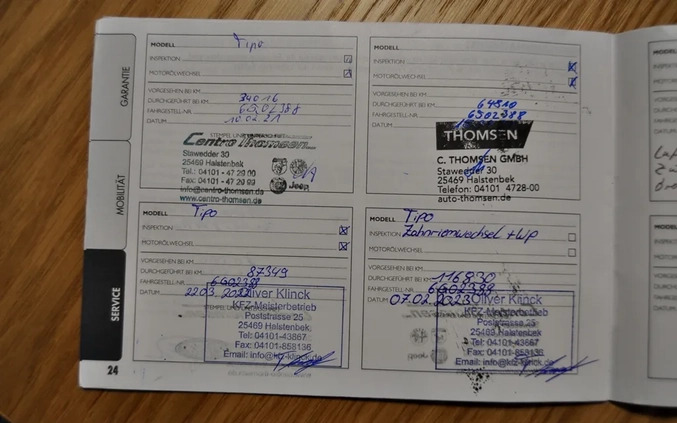 MODELL Tipo
INSPEKTION
MOTORÖLWECHSEL
VORGESEHEN BEI KM
DURCHGEFÜHRT BEI KM 34016
FAHRGESTELL-NR. 6G02388
DATUM 10.02.21
Centro Thomsen
Stawedder 30
25469 Halstenbek
Tel.: 04101 - 47 29 00
Fax: 04101 - 47 29 99
info@centro-thomsen.de
www.centro-thomsen.de
Jeep
MODELL
INSPEKTION
MOTORÖLWECHSEL
VORGESEHEN BEI KM
DURCHGEFÜHRT BEI KM 64510
FAHRGESTELL-NR. 6G02388
DATUM
THOMSEN
C. THOMSEN GMBH
Stawedder 30
25469 Halstenbek
Telefon: 04101 4728-00
auto-thomsen.de
MODELL Tipo
INSPEKTION
MOTORÖLWECHSEL
VORGESEHEN BEI KM
DURCHGEFÜHRT BEI KM 87349
FAHRGESTELL-NR. 6G02388
DATUM 22.03.2022
Oliver Klinck
KFZ-Meisterbetrieb
Poststrasse 25
25469 Halstenbek
Tel: 04101-43867
Fax: 04101-858136
Email: info@kfz-klinck.de
MODELL Tipo
INSPEKTION Zahnriemwechsel + Wp
MOTORÖLWECHSEL
VORGESEHEN BEI KM
DURCHGEFÜHRT BEI KM 116830
FAHRGESTELL-NR. 6G02388
DATUM 07.02.2023
Oliver Klinck
KFZ-Meisterbetrieb
Poststrasse 25
25469 Halstenbek
Tel: 04101-43667
Fax: 04101-858136
Email: info@kfz-klinck.de
GARANTIE
MOBILITÄT
SERVICE
24